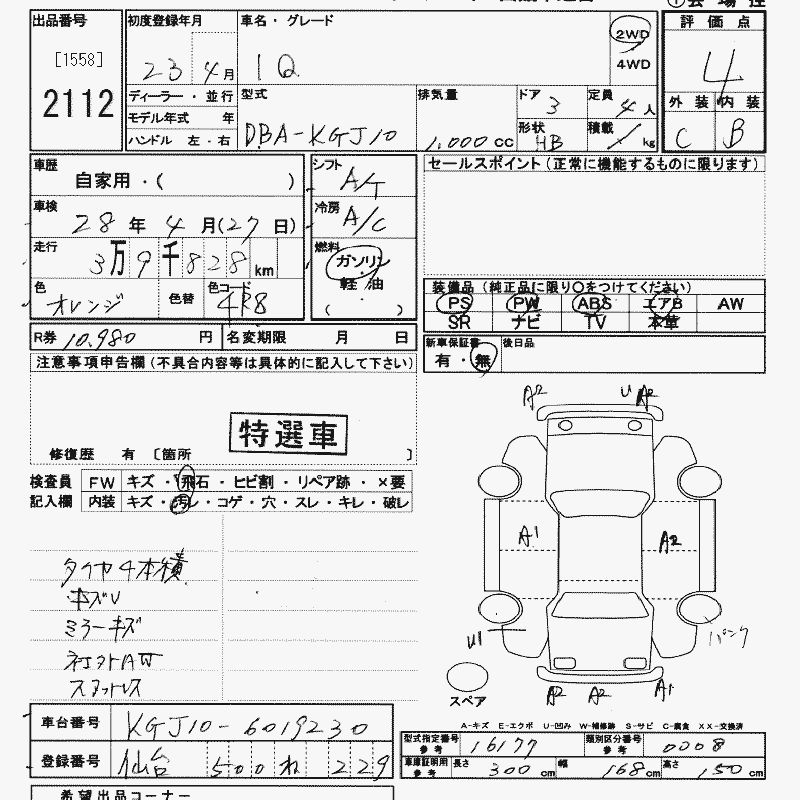 出品番号
[1558]
2112
初度登録年月
23 4月
ディーラー・並行
モデル年式 年
ハンドル 左・右
車名・グレード
IQ
2WD
4WD
型式
DBA-KGJ10
排気量
1,000cc
ドア 3
形状 HB
定員 4人
積載 kg
評価点
4
外装 内装
C B
車歴
自家用・( )
車検
28年4月(27日)
走行
3万9千828km
色
オレンジ
色替
色コード
4R8
シフト
A/T
冷房
A/C
燃料
ガソリン
軽油
( )
セールスポイント(正常に機能するものに限ります)
装備品(純正品に限り〇をつけてください)
PS PW ABS エアB AW
SR ナビ TV 本革
R券 10,980円
名変期限 月 日
新車保証書
有・無
後日品
注意事項申告欄(不具合内容等は具体的に記入して下さい)
特選車
修復歴 有 〔箇所 〕
検査員
記入欄
FW キズ・飛石・ヒビ割・リペア跡・×要
内装 キズ・汚レ・コゲ・穴・スレ・キレ・破レ
タイヤ4本積
キズU
ミラーキズ
スタットレス
A2 U A2
A1 A2
U1 パンク
スペア
A2 A2 A1
A-キズ E-エクボ U-凹み W-補修跡 S-サビ C-腐食 XX-交換済
車台番号
KGJ10-6019230
登録番号
仙台 500 ね 229
型式指定番号
参考
16177
類別区分番号
参考
0008
車庫証明用
参考
長さ 300cm 幅 168cm 高さ 150cm
希望出品コーナー